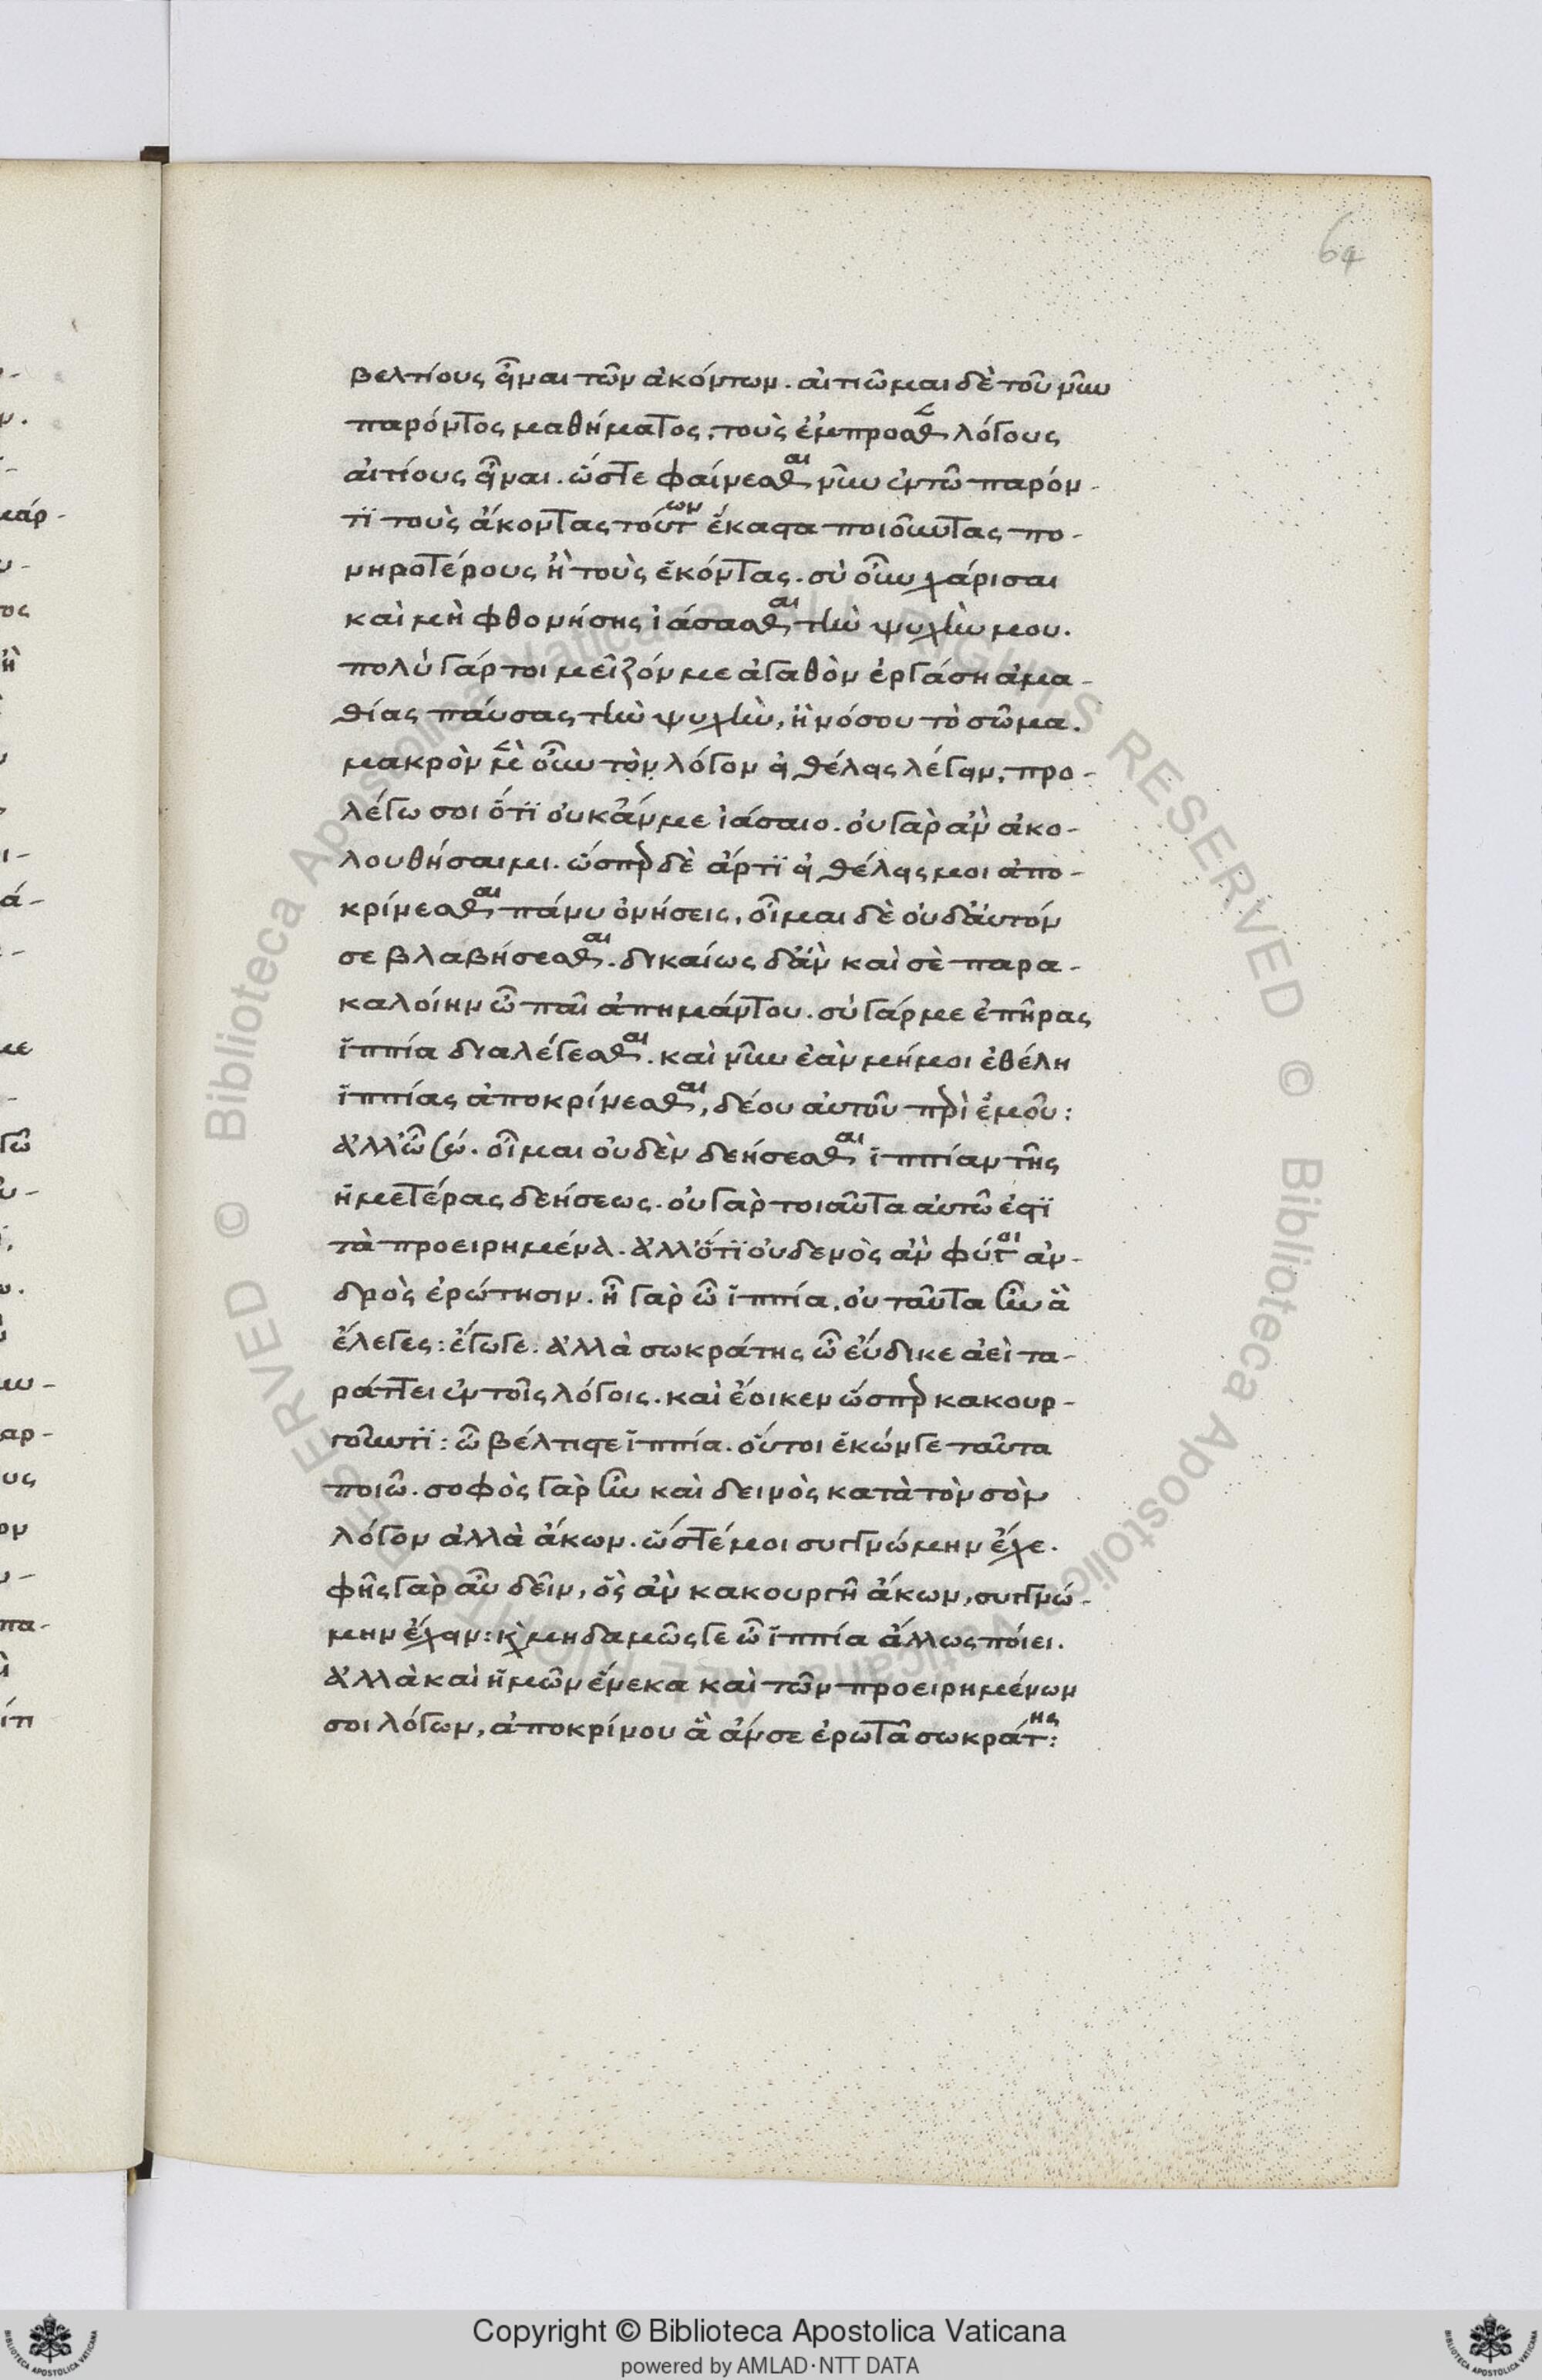 64
βελτίους εἶναι τῶν ἀκόντων. αἰτιῶμαι δὲ τοῦ νῦν
παρόντος μαθήματος, τοὺς ἔμπροσθεν λόγους
αἰτίους εἶναι. ὥστε φαίνεσθαι νῦν ἐν τῶ παρόν-
τϊ τοὺς ἄκοντας τούτων ἕκαστα ποιοῦντας πο-
νηροτέρους ἢ τοὺς ἑκόντας. σὺ οὖν χάρισαι
καὶ μὴ φθονήσης ἰάσασθαι τὴν ψυχήν μου.
πολὺ γάρ τοι μεῖζόν με ἀγαθὸν ἐργάση ἀμα-
θίας παύσας τὴν ψυχὴν, ἢ νόσου τὸ σῶμα.
μακρὸν μὲν οὖν τὸν λόγον εἰ θέλεις λέγειν, προ-
λέγω σοι ὅτϊ οὐκ ἄν με ἰάσαιο. οὐ γὰρ ἂν ἀκο-
λουθήσαιμι. ὥσπερ δὲ ἄρτϊ εἰ θέλεις μοι ἀπο-
κρίνεσθαι πάνυ ὀνήσεις, οἶμαι δὲ οὐδ' αὐτόν
σε βλαβήσεσθαι. δικαίως δ' ἂν καὶ σὲ παρα-
καλοίην ὦ παῖ ἀπημάντου. σὺ γάρ με ἐπῆρας
ἱππία διαλέγεσθαι. καὶ νῦν ἐὰν μή μοι ἐθέλη
ἱππίας ἀποκρίνεσθαι, δέου αὐτοῦ περὶ ἐμοῦ:
ἀλλ' ὦ σώ. οἶμαι οὐδὲν δεήσεσθαι ἱππίαν τῆς
ἡμετέρας δεήσεως. οὐ γὰρ τοιαῦτα αὐτῶ ἐστϊ
τὰ προειρημένα. ἀλλ' ὅτϊ οὐδενὸς ἂν φύγοι ἀν-
δρὸς ἐρώτησιν. ἦ γὰρ ὦ ἱππία, οὐ ταῦτα ἦν ἃ
ἔλεγες: ἔγωγε. ἀλλὰ σωκράτης ὦ εὔδικε ἀεὶ τα-
ράττει ἐν τοῖς λόγοις. καὶ ἔοικεν ὥσπερ κακουρ-
γοῦντϊ: ὦ βέλτιστε ἱππία. οὔτοι ἑκών γε ταῦτα
ποιῶ. σοφὸς γὰρ ἦν καὶ δεινὸς κατὰ τὸν σὸν
λόγον ἀλλὰ ἄκων. ὥστέ μοι συγγνώμην ἔχε.
φῆς γὰρ αὖ δεῖν, ὃς ἂν κακουργῆ ἄκων, συγγνώ-
μην ἔχειν: κ μηδαμῶς γε ὦ ἱππία ἄλλως ποίει.
ἀλλὰ καὶ ἡμῶν ἕνεκα καὶ τῶν προειρημένων
σοι λόγων, ἀποκρίνου ἃ ἄν σε ἐρωτᾶ σωκράτης:
Copyright © Biblioteca Apostolica Vaticana
powered by AMLAD·NTT DATA